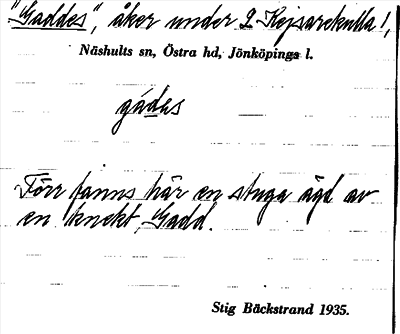 "Gaddes", åker under 2 Kejsarekulla 1,
Näshults sn, Östra hd, Jönköpings l.
gádas
Förr fanns här en stuga ägd av
en knekt, Gadd.
Stig Bäckstrand 1935.